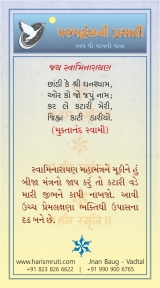 પરમહંસની પ્રસાદી
સ્વયં થી પરમની યાત્રા
જય સ્વામિનારાયણ
છાંડી કે શ્રી ઘનશ્યામ,
ઓર કો જો જપું નામ;
કર લે કટારી મેરી,
જિહ્વા કાટી ડારીયો.
(મુક્તાનંદ સ્વામી)
સ્વામિનારાયણ મહામંત્રને મૂકીને હું
બીજા મંત્રનો જાપ કરું તો કટારી વડે
મારી જીભને કાપી નાખજો. આવી
ઉચ્ચ પ્રેમલક્ષણા ભક્તિથી ઉપાસના
દઢ બને છે.
www.harismruti.com Jnan Baug - Vadtal
+91 823 826 6622 | +91 990 900 6765